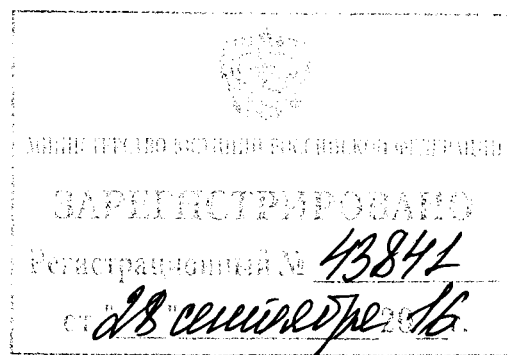 МИНИСТЕРСТВО ЮСТИЦИИ РОССИЙСКОЙ ФЕДЕРАЦИИ
ЗАРЕГИСТРИРОВАНО
Регистрационный № 43841
от "28" сентября 2016.